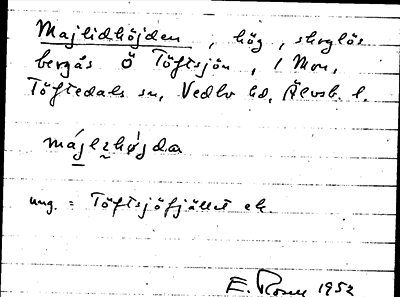 Majlidhöjden, hög, skoglös
bergås Ö Töftsjön, i Mon,
Töftedals sn, Vedbo hd, Älvsb. l.
májlɩhø̀jda
ung. = Töftsjöfjället ek.
E. 1952